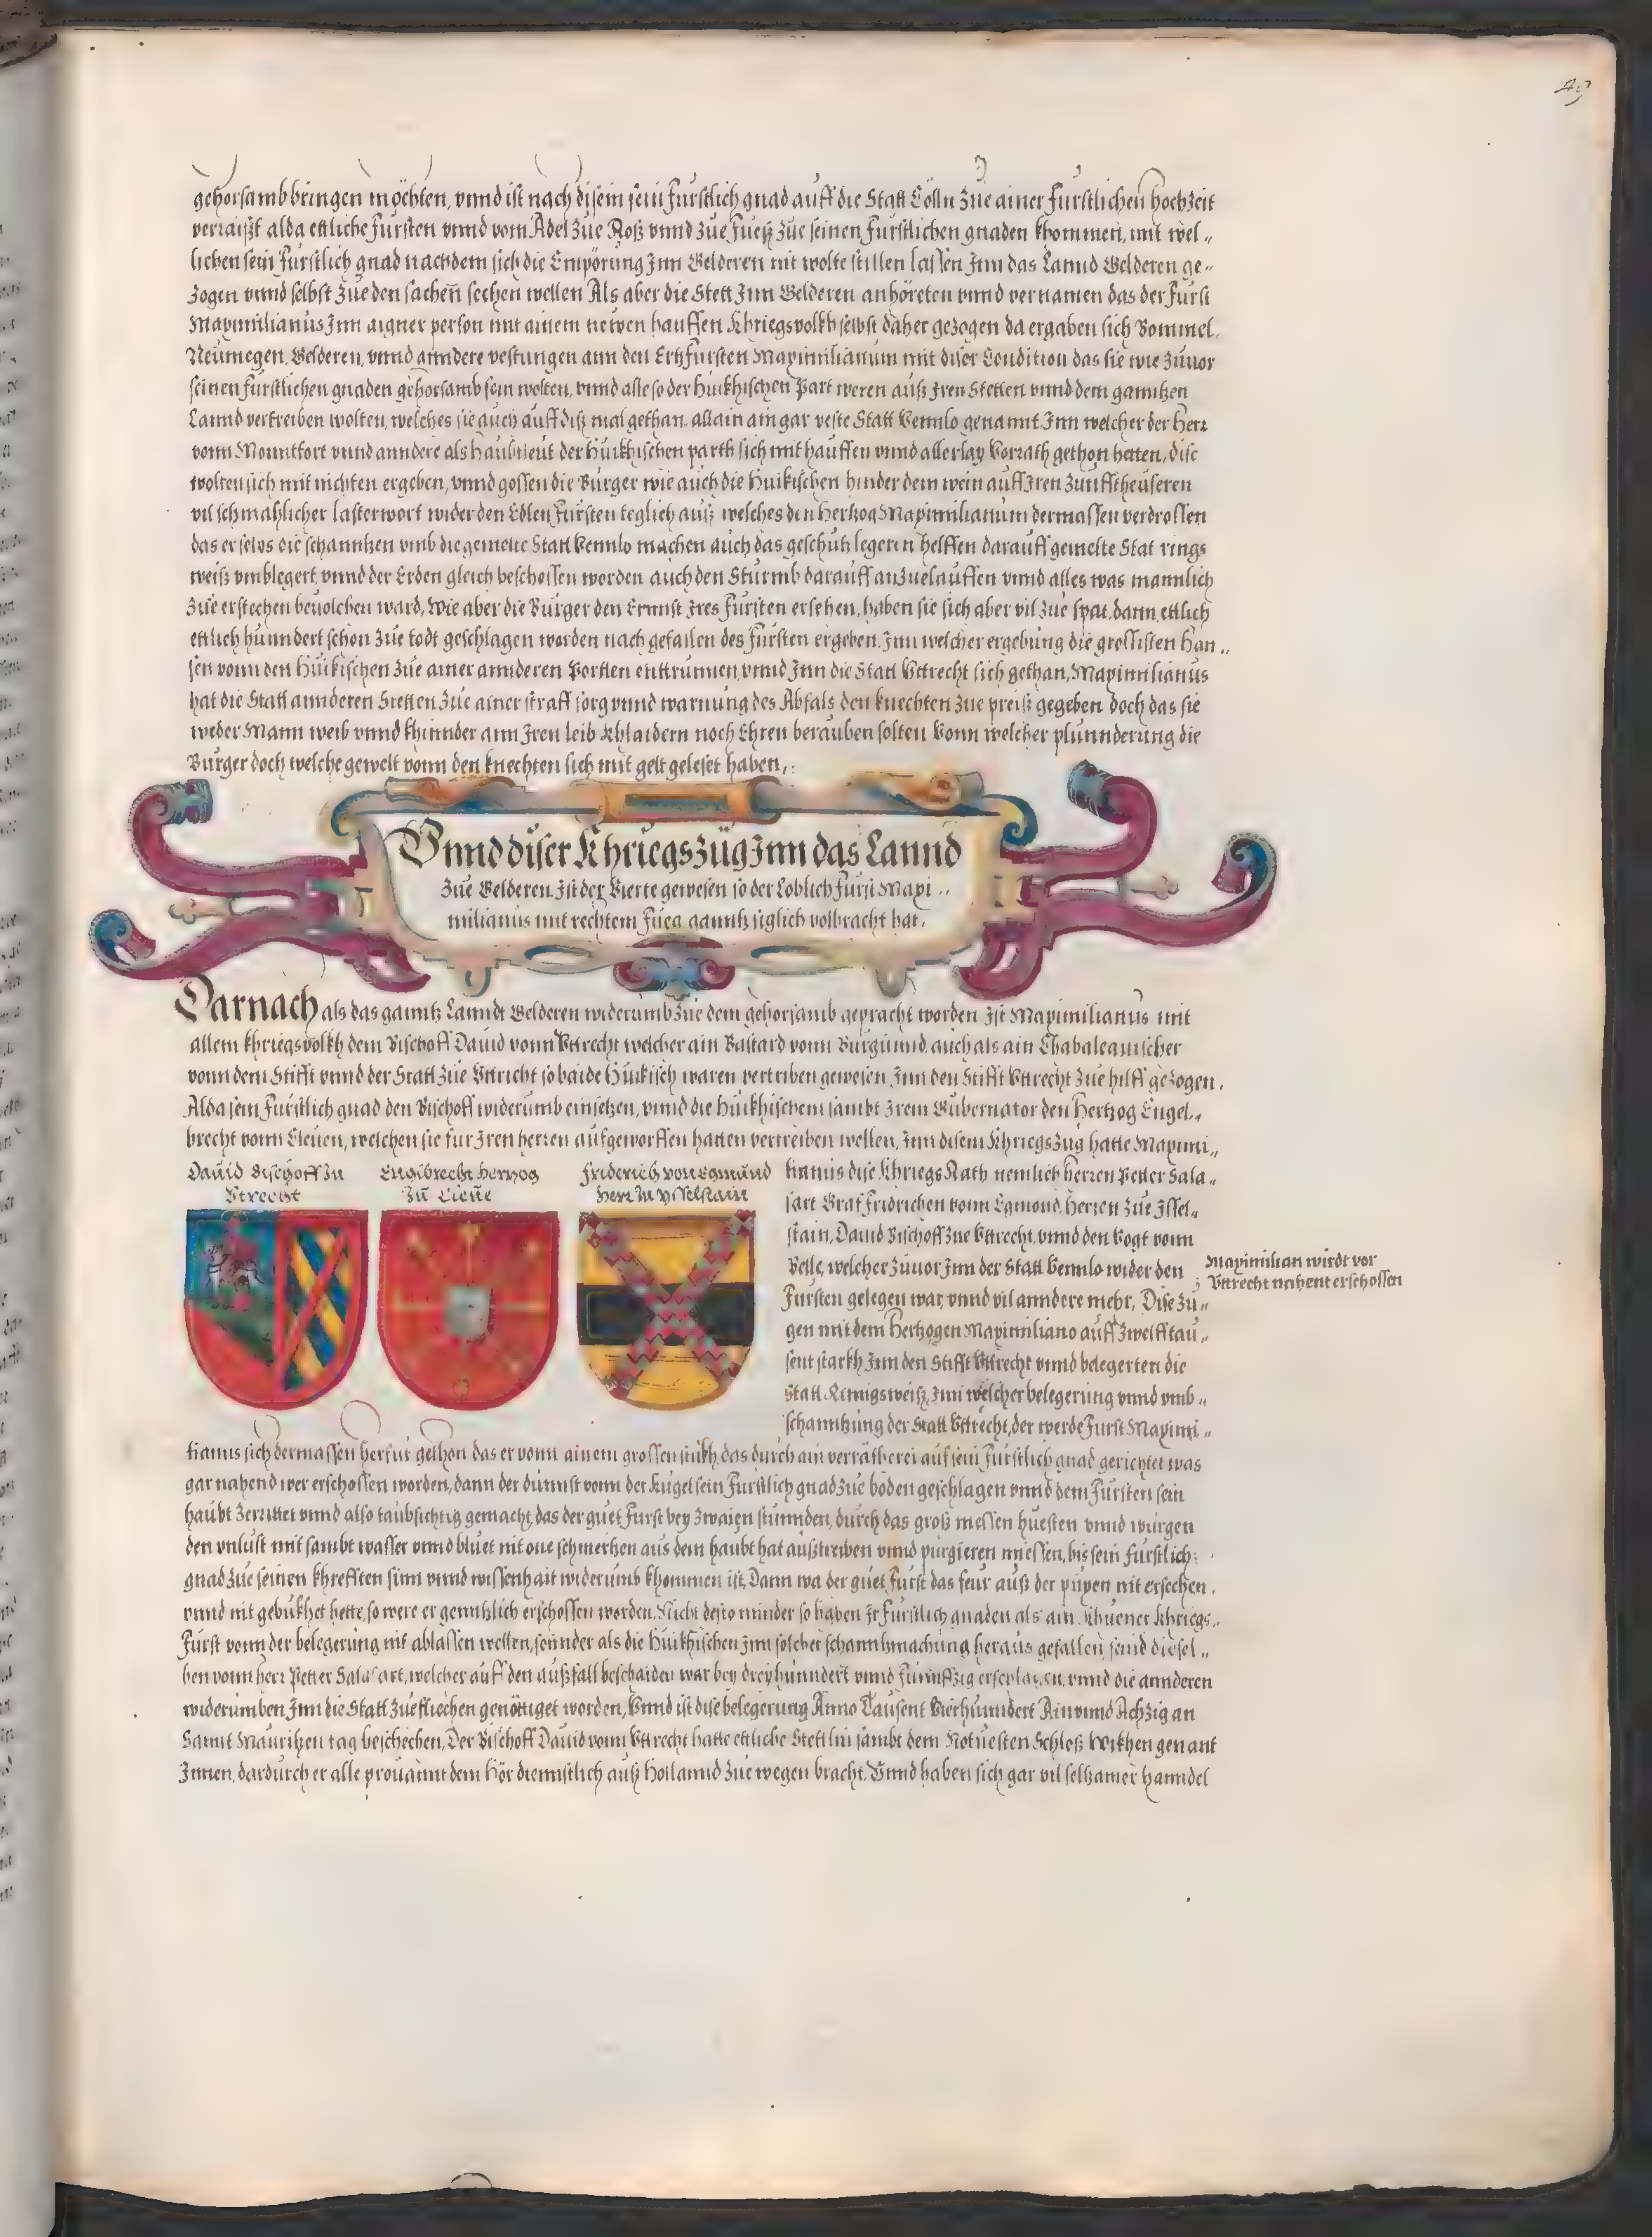 49
gehorsamb bringen möchten, vnnd ist nach disem sein Fürstlich gnad auff die Statt Cölln Zue ainer Fürstlichen hochzeit
verraißt alda ettliche Fürsten vnnd vom Adel Zue Roß vnnd Zue Fueß Zue seinen Fürstlichen gnaden khommen, mit wel„
lichen sein Fürstlich gnad nachdem sich die Empörung Jnn Gelderen nit wolte stillen lassen Jnn das Lannd Gelderen ge„
Zogen vnnd selbst Zue den sachen sechen wellen Als aber die Stett Jnn Gelderen anhöreten vnnd vernamen das der Fürst
Maximilianus Jnn aigner person mit ainem newen hauffen Khriegsvolkh selbst daher gezogen da ergaben sich Bommel,
Neümegen, Gelderen, vnnd anndere vestungen ann den Ertzfürsten Maximilianum mit diser Condition das sie wie Zuuor
seinen fürstlichen gnaden gehorsamb sein wolten, vnnd alle so der Huikhischen Part weren auß Jren Stetten vnnd dem ganntzen
Lannd vertreiben wolten, welches sie auch auff diß mal gethan, allain ain gar veste Statt Vennlo genannt Jnn welcher der Herr
vonn Monntfort vnnd anndere als Haubtleut der Huikhischen parth sich mit hauffen vnnd allerlay Vorrath gethon hetten, dise
wolten sich mit nichten ergeben, vnnd gossen die Burger wie auch die Huikischen hinder dem wein auff Jren Zunfftheuseren
vil schmahlicher lasterwort wider den Edlen Fürsten teglich auß welches den Hertzog Maximilianum dermassen verdrossen
das er selbs die schanntzen vmb die gemelte Statt Vennlo machen auch das geschütz legeren helffen darauff gemelte Stat rings
weiß vmblegert, vnnd der Erden gleich beschossen worden auch den Sturmb darauff anzuelauffen vnnd alles was mannlich
Zue erstechen beuolchen ward, Wie aber die Burger den Ernnst Jres Fürsten ersehen, haben sie sich aber vil Zue spat, dann ettlich
ettlich hunndert schon Zue todt geschlagen worden nach gefallen des Fürsten ergeben, Jnn welcher ergebung die grossisten Han„
sen vonn den Huikischen Zue ainer annderen Portten enttrunnen vnnd Jnn die Statt Vttrecht sich gethan, Maximilianus
hat die Statt annderen Stetten Zue ainer straff sorg vnnd warnung des Abfals den knechten Zue preiß gegeben doch das sie
weder Mann weib vnnd khinnder ann Jren leib Khlaidern noch Ehren berauben solten Vonn welcher plunnderung die
Burger doch welche gewelt vonn den knechten sich mit gelt geleset haben,
Vnnd diser Khriegszüg Jnn das Lannd
Zue Gelderen Jst der Vierte gewesen so der Loblich Fürst Maxi„
milianus mit rechtem Fueg ganntz siglich volbracht hat.
Darnach als das ganntz Lanndt Gelderen widerumb Zue dem gehorsamb gepracht worden Jst Maximilianus mit
allem khriegsvolkh dem Bischoff Dauid vonn Vttrecht welcher ain Bastard vonn Burgunnd, auch als ain Chabaleauischer
vonn dem Stifft vnnd der Statt Zue Vttricht so baide Huikisch waren vertriben gewesen Jnn den Stifft Vttrecht Zue hilff gezogen,
Alda sein Fürstlich gnad den Bischoff widerumb einsetzen, vnnd die Huikhischenn sambt Jrem Gubernator den Hertzog Engel„
brecht vonn Cleuen, welchen sie für Jren herren aufgeworffen hatten vertreiben wellen, Jnn disem Khriegszug hatte Maximi„
Dauid Bischoff zu
Vtrecht
Engelbrecht Hertzog
Zu Cleue
Friderich von Egmund
Herr zu Ysselstain
lianus dise Khriegs Rath nemlich Herren Petter Sala„
sart Graf Fridrichen vonn Egmond, Herren Zue Jssel„
stain, Dauid Bischoff Zue Vttrecht, vnnd den Vogt vonn
Velle, welcher Zuuor Jnn der Statt Vennlo wider den
Fürsten gelegen war, vnnd vil anndere mehr, Dise Zu„
gen mit dem Hertzogen Maximiliano auff Zwelfftau„
sent starkh Jnn den Stifft Vttrecht vnnd belegerten die
Statt Rinngsweiß, Jnn welcher belegerung vnnd vmb„
schanntzung der Statt Vttrecht, der werde Fürst Maximi„
Maximilian wirdt vor
Vttrecht nahent erschossen
lianus sich dermassen herfür gethon das er vonn ainem grossen stukh, das durch ain verrätherei auf sein Fürstlich gnad gerichtet was
gar nahend wer erschossen worden, dann der dunnst vonn der Kugel sein Fürstlich gnad Zue boden geschlagen vnnd dem Fürsten sein
haubt Zerrittet vnnd also taubsichtig gemacht, das der guet Fürst bey Zwaien stunnden, durch das groß messen huesten vnnd würgen
den vnlust mit sambt wasser vnnd bluet nit one schmertzen aus dem haubt hat außtreiben vnnd purgieren miessen, bis sein Fürstlich
gnad Zue seinen khrefften sinn vnnd wissenhait widerumb khommen ist, Dann wa der guet Fürst das feur auß der pixen nit ersechen,
vnnd nit gebukhet hette, so were er genntzlich erschossen worden, Nicht desto minder so haben Jr Fürstlich gnaden als ain Khuener Khriegs„
Fürst vonn der belegerung nit ablassen wellen, sonnder als die Huikhischen Jnn solcher schanntzmachung heraus gefallen, seind diesel„
ben vonn Herr Petter Salasart, welcher auff den außfall beschaiden war bey dreyhunndert vnnd Funnffzig erschlagen, vnnd die annderen
widerumben Jnn die Statt Zue fliechen genöttiget worden, Vnnd ist dise belegerung Anno Tausent Vierhunndert Ainunnd Achzig an
Sannt Mauritzen tag beschechen, Der Bischoff Dauid vonn Vttrecht hatte ettliche Stettlin sambt dem Notuesten Schloß Wikhen genant
Jnnen, dardurch er alle prouiannt dem Hör diennstlich auß Hollannd Zue wegen bracht, Vnnd haben sich gar vil seltzamer hanndel